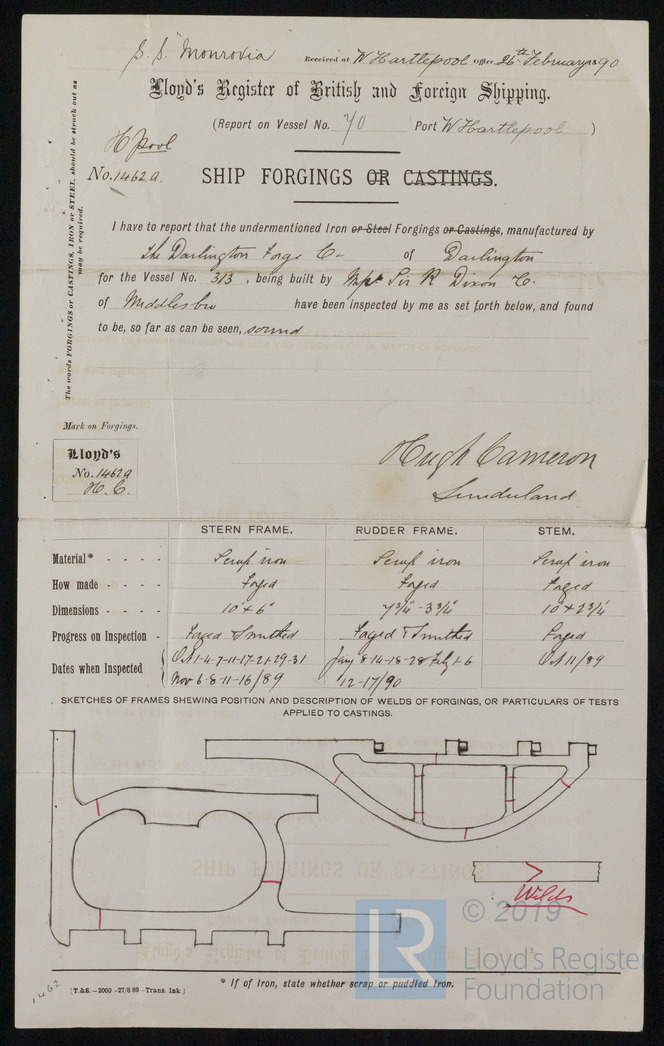 S.S. Monrovia Received at W Hartlepool Office 26th February 1890
Lloyd's Register of British and Foreign Shipping.
(Report on Vessel No. 70 Port W Hartlepool )
H pool
No. 1462a. SHIP FORGINGS OR CASTINGS.
The words FORGINGS or CASTINGS, IRON or STEEL, should be struck out as may be required.
I have to report that the undermentioned Iron or Steel Forgings or Castings, manufactured by
The Darlington Forge Co of Darlington
for the Vessel No. 313, being built by Sir R Dixon Co.
of Middlesbro have been inspected by me as set forth below, and found
to be, so far as can be seen, sound
Mark on Forgings.
Lloyd's
No. 1462a
H. C.
Hugh Cameron
Sunderland
STERN FRAME. RUDDER FRAME. STEM.
Material* - - - - Scrap iron Scrap iron Scrap iron
How made - - - - Forged Forged Forged
Dimensions - - - - 10" x 6" 7 3/4" - 3 3/4" 10" x 2 3/4"
Progress on Inspection - Forged & smithed Forged & smithed Forged
Dates when Inspected Oct 1-4-7-11-17-21-29-31 Jany 8-14-18-28 Feby 1-6 Oct 11/89
Nov 6-8-11-16/89 12-17/90
SKETCHES OF FRAMES SHEWING POSITION AND DESCRIPTION OF WELDS OF FORGINGS, OR PARTICULARS OF TESTS
APPLIED TO CASTINGS.
Welds
© 2019
LR
Lloyd's Register
Foundation
* If of Iron, state whether scrap or puddled Iron.
1462
[T.&S.—2000—27/8/89—Trans. Ink.]